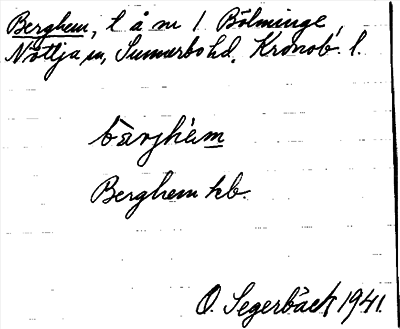 Berghem, l å m 1 Bölminge,
Nöttja sn, Sunnerbo hd, Kronob. l.
bärjhem
Berghem kb.
O. Segerbäck 1941.